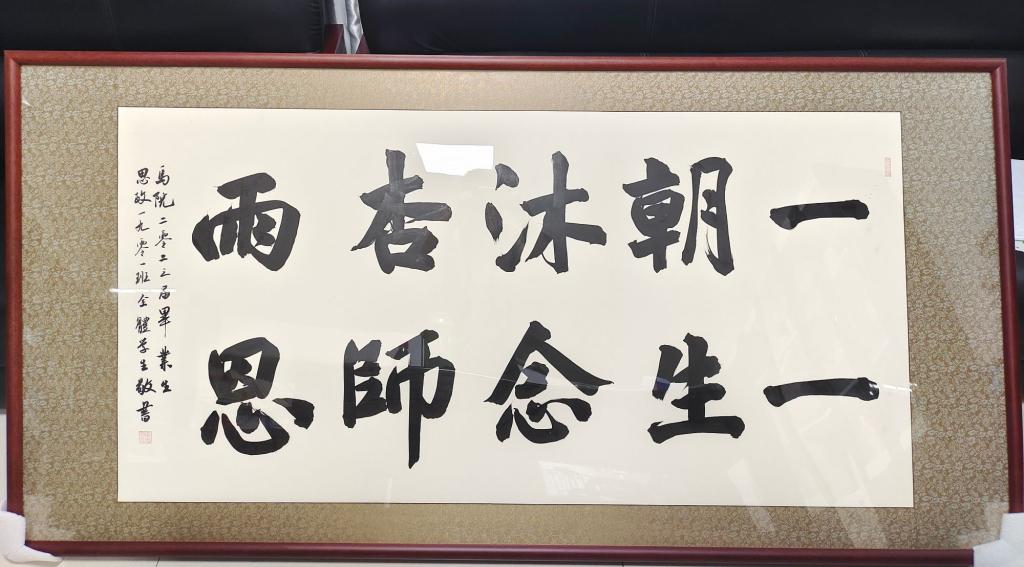 一朝沐杏雨
一生念師恩
馬院二零二三届畢業生
思政一九零一班全體学生敬書